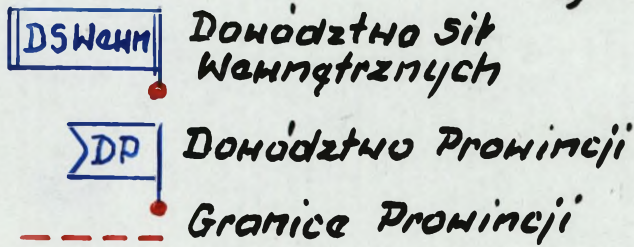 DSWewn Dowództwo Sił
Wewnętrznych
DP Dowództwo Prowincji
Granice Prowincji